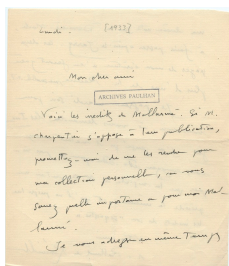 lundi.
[1933]
Mon cher ami
ARCHIVES PAULHAN
Voici les inédits de Mallarmé. Si M.
Charpentier s'oppose à leur publication,
promettez-moi de me les rendre pour
ma collection personnelle, car vous
savez quelle importance a pour moi Mal-
larmé.
Je vous adresse en même temps